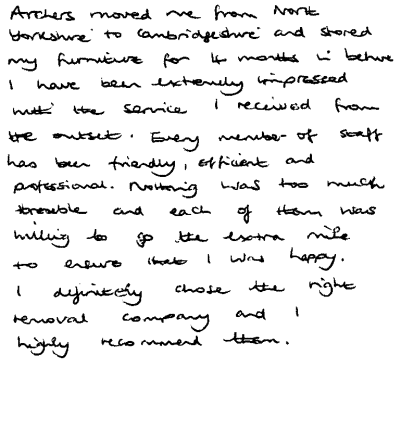 Archers moved me from North
Yorkshire to Cambridgeshire and stored
my furniture for 4 months in between
I have been extremely impressed
with the service I received from
the outset. Every member of staff
has been friendly, efficient and
professional. Nothing was too much
trouble and each of them was
willing to go the extra mile
to ensure that I was happy.
I definitely chose the right
removal company and I
highly recommend them.